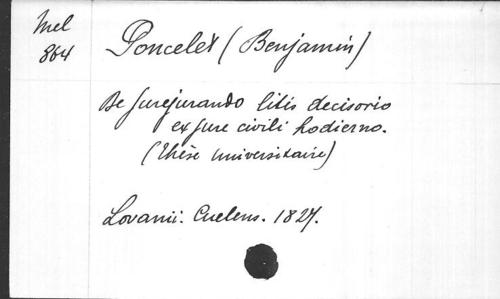 Mel
864
Poncelet (Benjamin)
De Jurejurando litis decisorio
ex jure civili hodierno.
(Thèse universitaire)
Lovanii. Cuelens. 1827.